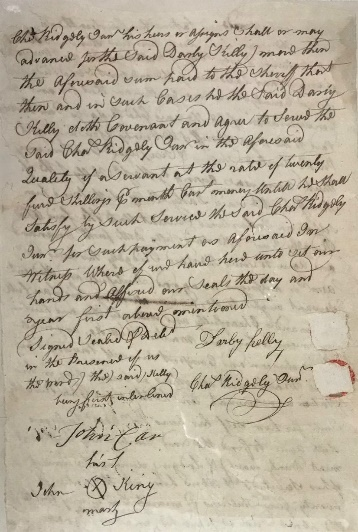 Chas Ridgely Junr his heirs or Assigns Shall or may
advance for the Said Darby Kelly) more then
the Aforesaid sum paid to the Sheriff that
then and in Such Cases he the Said Darby
Kelly doth Covenant and Agree to Serve the
Said Chas Ridgely Junr in the Aforesaid
Quality of a Servant at the rate of twenty
five Shillings p month Curt money Untill he Shall
Satisfy by Such Service the Said Chas Ridgely
Junr for Such payment as Aforesaid In
Witness Where of we have here unto set our
hands and Affixed our Seals the day and
year first above mentioned
Signed Sealed & Deld
in the Presence of us
the words) the said Kelly
being first interlined
Darby Kelly
Chas Ridgely Junr
John
his
John X King
mark